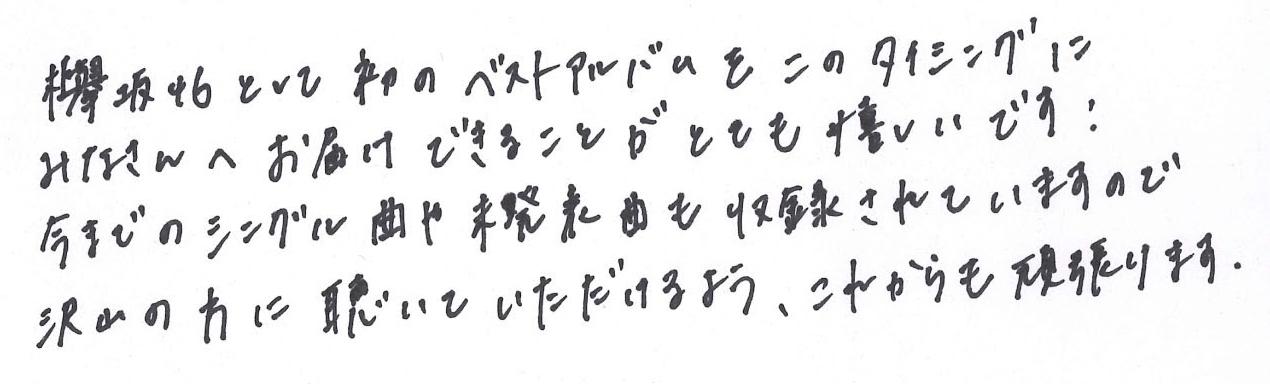 欅坂46として初のベストアルバムをこのタイミングに
みなさんへお届けできることがとても嬉しいです!
今までのシングル曲や未発表曲も収録されていますので
沢山の方に聴いていただけるよう、これからも頑張ります.